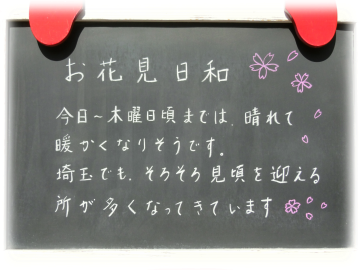 お花見日和
今日～木曜日頃までは、晴れて
暖かくなりそうです。
埼玉でも、そろそろ見頃を迎える
所が多くなってきています